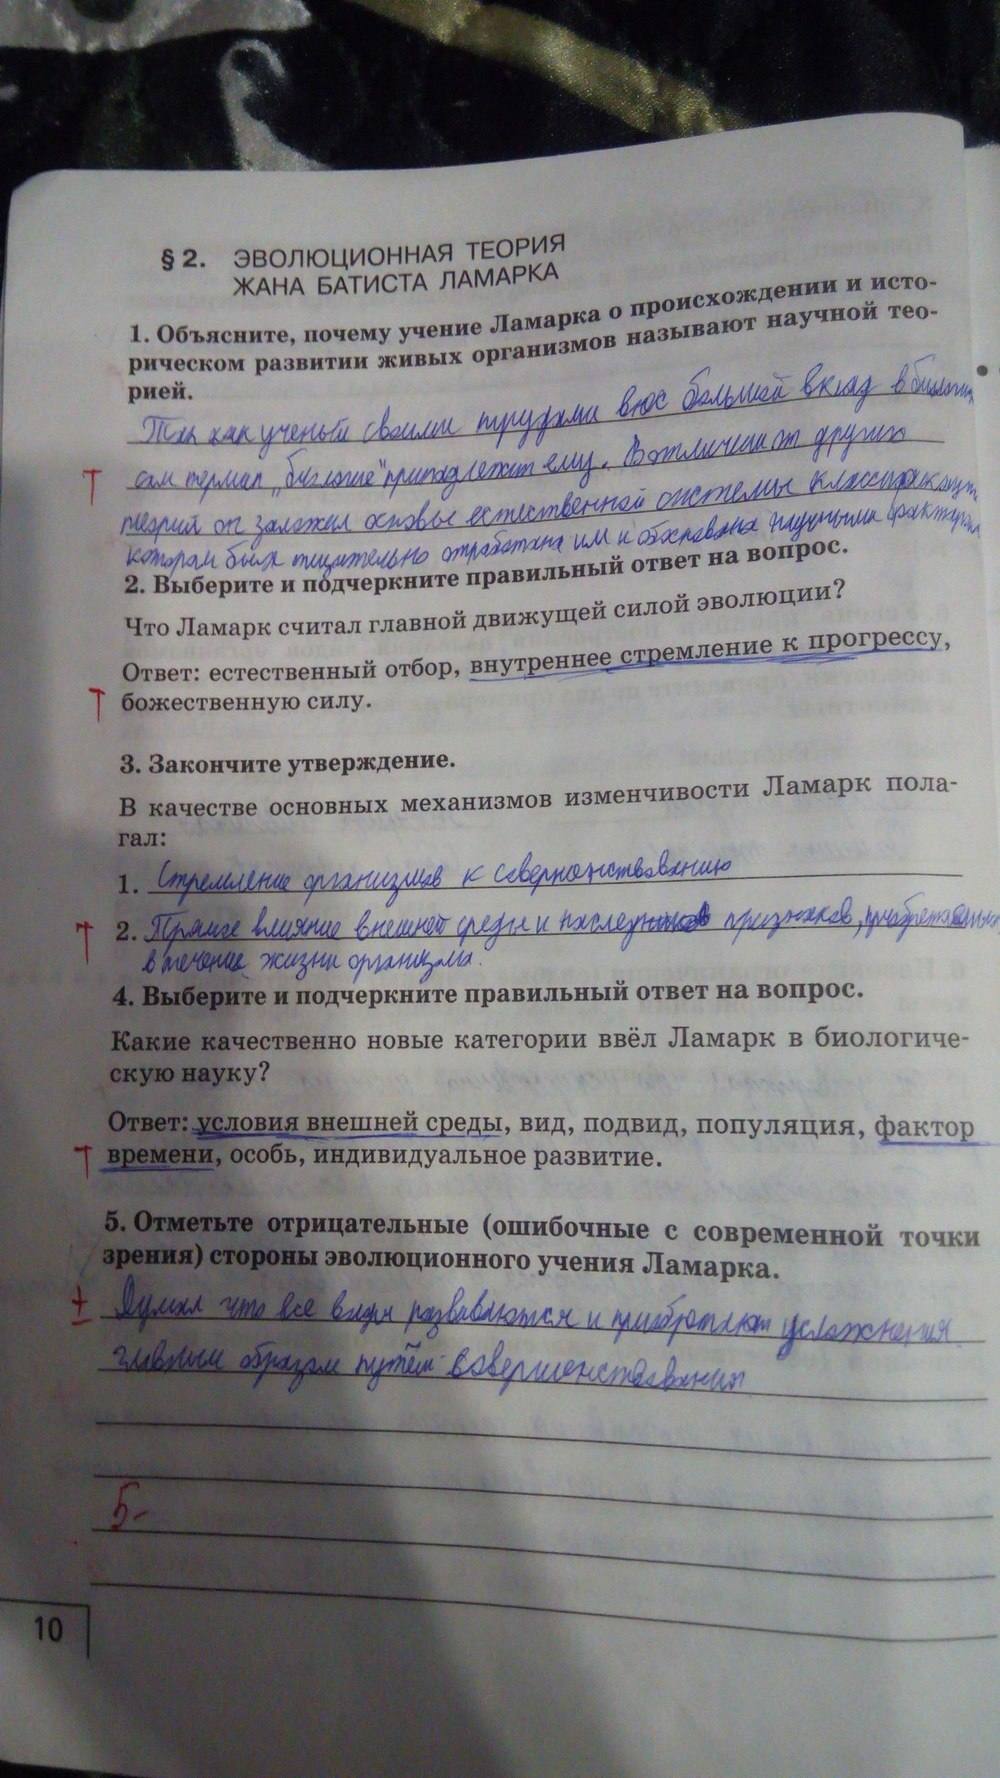 § 2. ЭВОЛЮЦИОННАЯ ТЕОРИЯ
ЖАНА БАТИСТА ЛАМАРКА
1. Объясните, почему учение Ламарка о происхождении и исто-
рическом развитии живых организмов называют научной тео-
рией.
Так как ученый своими трудами внос большой вклад в биологию
сам термин „биология" принадлежит ему. В отличии от других
теорий он заложил основы естественной системы классификации
которая была тщательно отработана им и обоснована научными факторами
2. Выберите и подчеркните правильный ответ на вопрос.
Что Ламарк считал главной движущей силой эволюции?
Ответ: естественный отбор, внутреннее стремление к прогрессу,
божественную силу.
3. Закончите утверждение.
В качестве основных механизмов изменчивости Ламарк пола-
гал:
1. Стремление организмов к совершенствованию
2. Прямое влияние внешней среды и признаков,
в течение жизни организма.
4. Выберите и подчеркните правильный ответ на вопрос.
Какие качественно новые категории ввёл Ламарк в биологиче-
скую науку?
Ответ: условия внешней среды, вид, подвид, популяция, фактор
времени, особь, индивидуальное развитие.
5. Отметьте отрицательные (ошибочные с современной точки
зрения) стороны эволюционного учения Ламарка.
± Думал что все виды развиваются и усложнения
главным образом путём совершенствования
5-
10